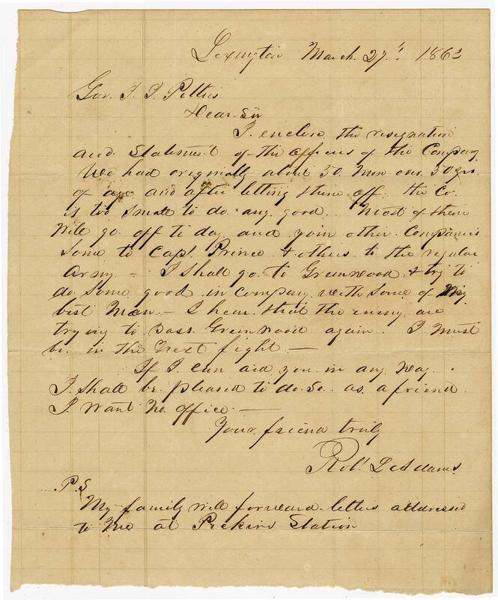 Lexington March 27th 1863
Gov. J J Pettus
Dear Sir
I enclose the resignation
and Statement of the officers of the Company
We had originally about 50 Men over 50 yrs.
of age and after letting them off the Co.
is too small to do any good. Most of them
will go off to day and join other Companies
Some to Capt. Prince & others to the regular
Army - I shall go to Greenwood & try to
do some good in company with some of my
best Men - I hear that the enemy are
trying to pass Greenwood again. I must
be in the next fight -
If I can aid you in any way
I shall be pleased to do so as a friend
I want no office -
Your friend truly
Robt
P.S
My family will forward letters addressed
to me at Pickens Station